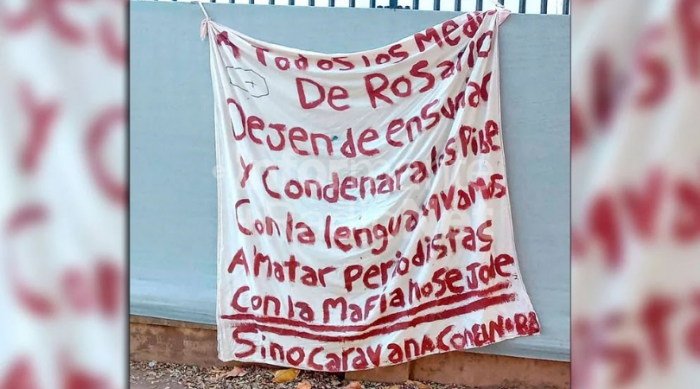 A Todos los Medi
De Rosario
Dejen de ensuciar
Y Condenar a los Pibe
Con la lengua qvamos
A matar periodistas
Con la Mafia no se Jode
Sino caravana